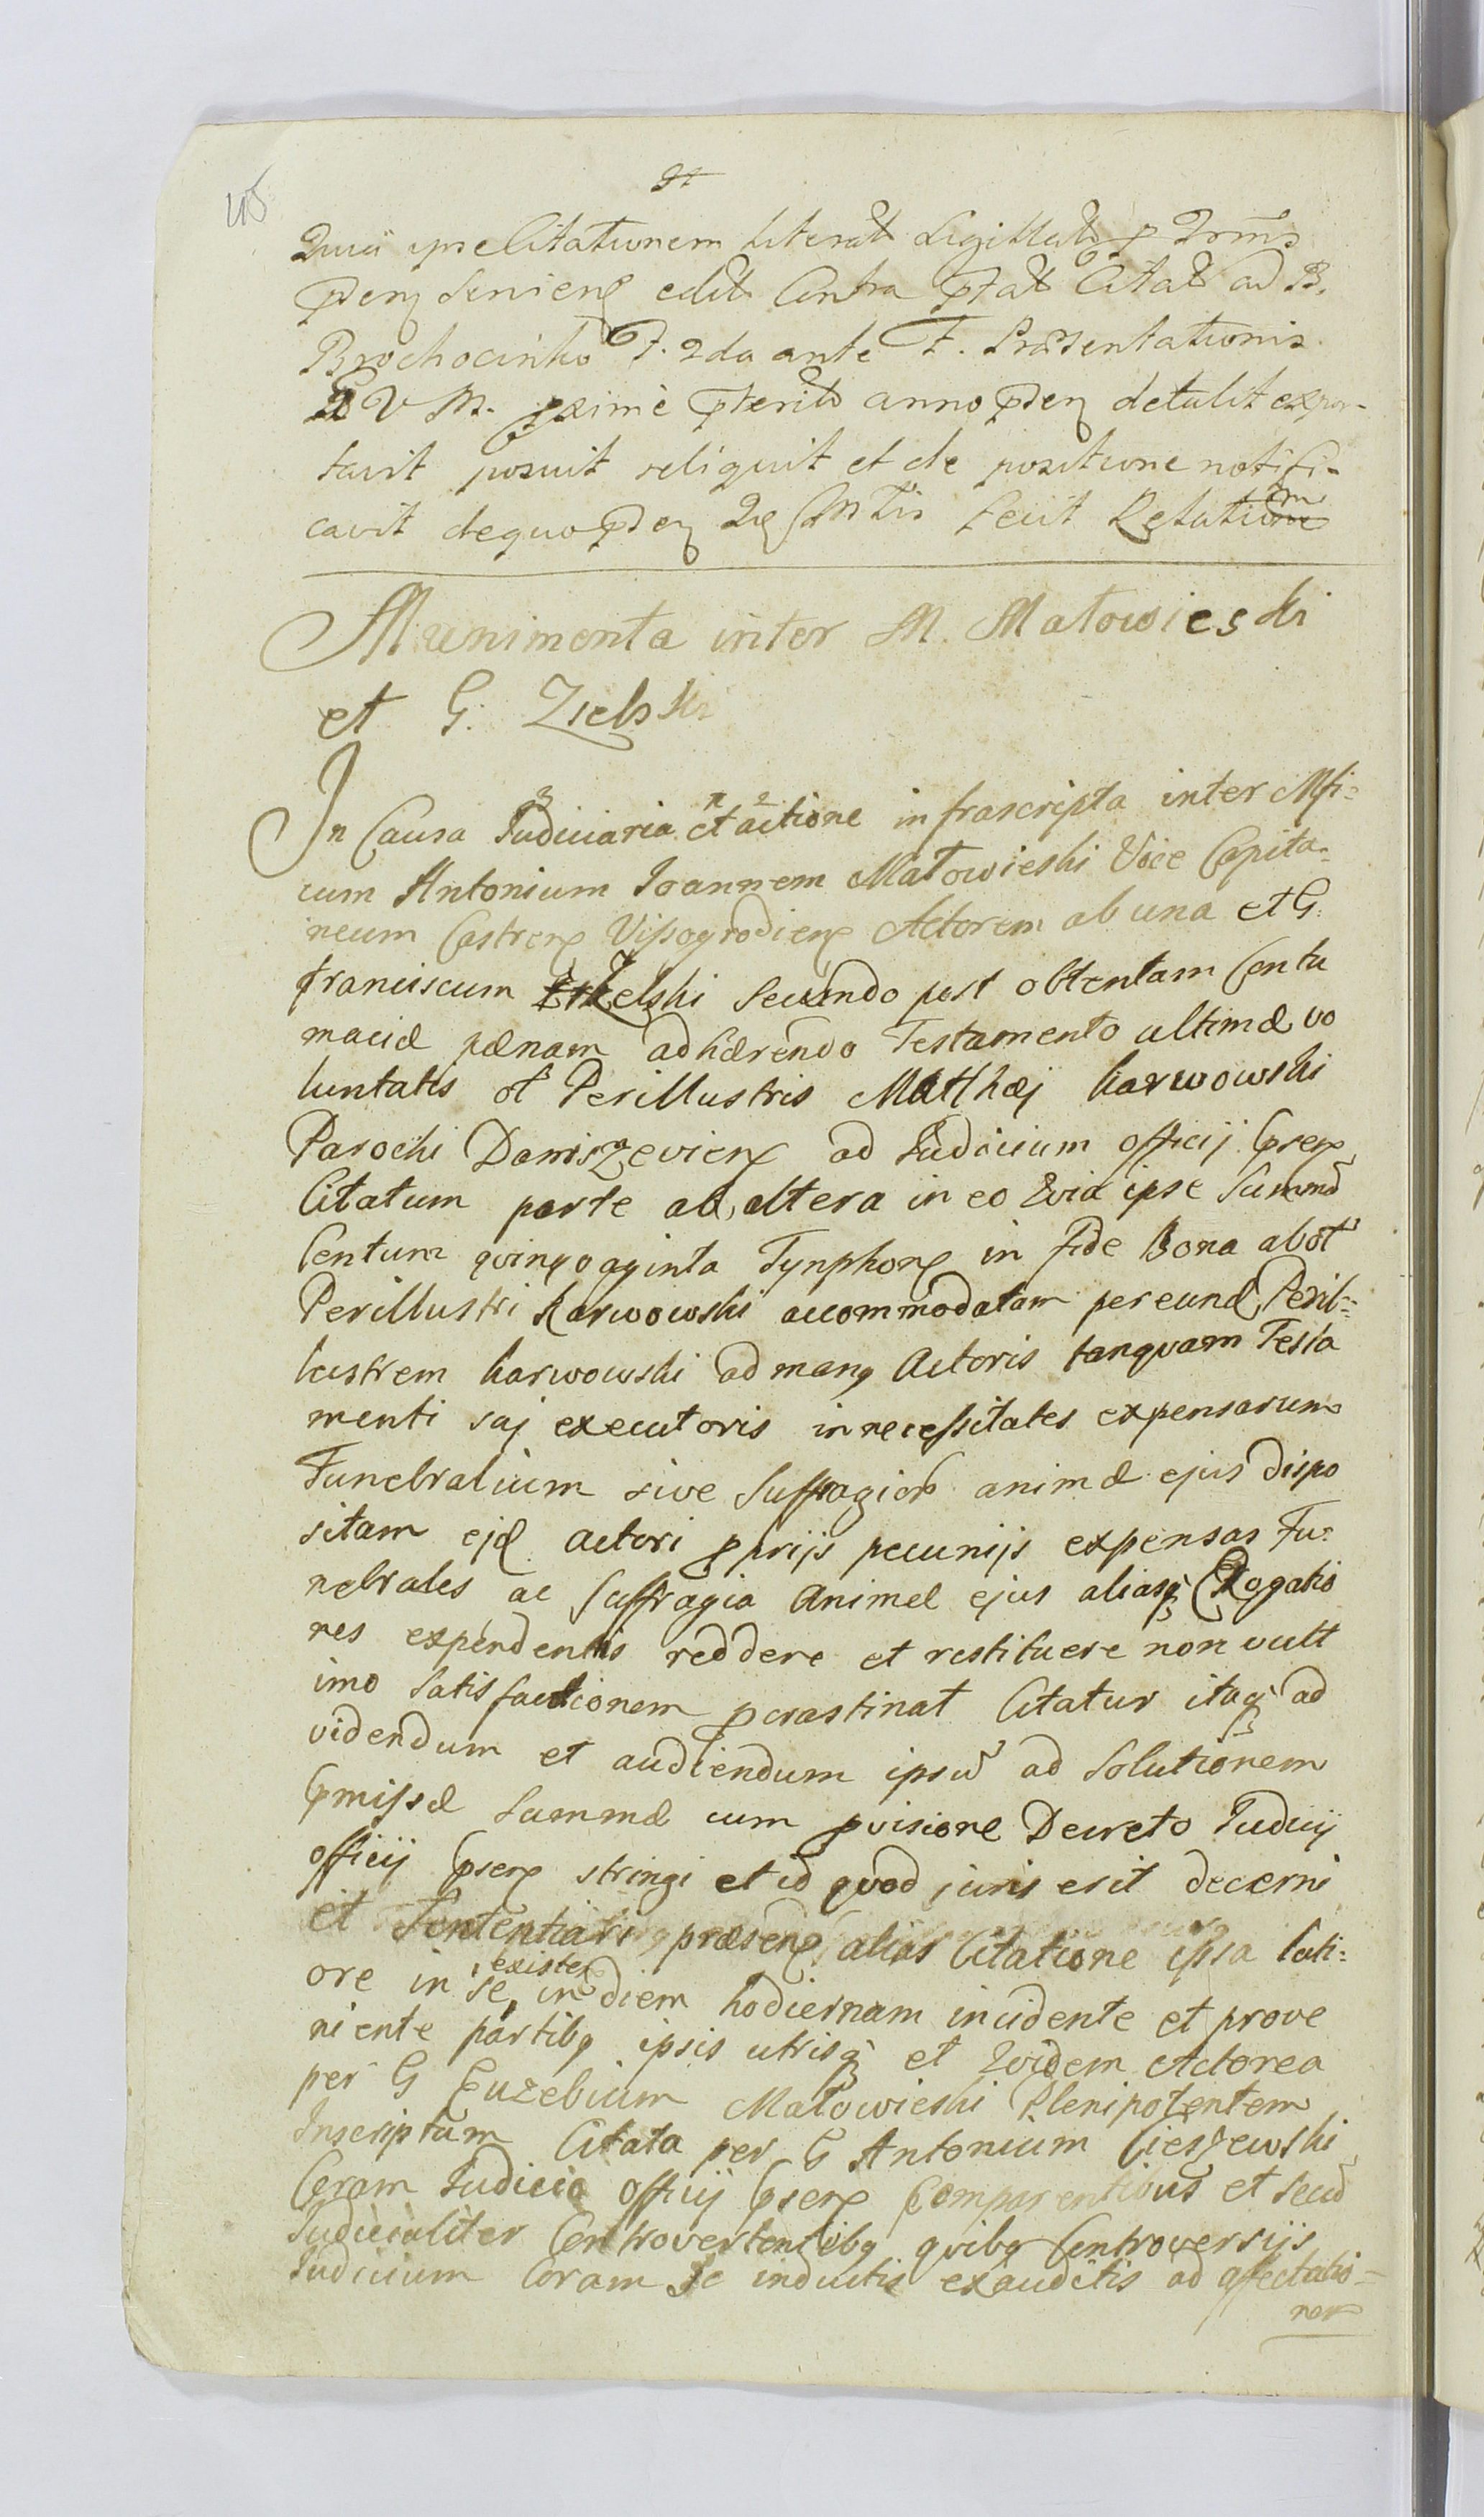 45
Quiá ipse Citationem literat Sigillat p
Pden Seniens edit Contra Ptat Citat ad B.
Brochocinko F. 2da ante F. Præsentationis
B V M. pxime Pterito anno Pden detulit expor-
tavit posuit reliquit et de positione notifi-
cavit dequo Pden fecit Relationem
Munimenta inter M. Małowieski
et G. Zielski
In Causa Judiciaria et actione infrascripta inter Mfi=
cum Antonium Joannem Małowieski Vice Capita=
neum Castrens Vissogrodiens Actorem ab una et G.
Franciscum Zielski Secundo post obtentam Contu
maciæ pænam adhærendo Testamento ultimæ vo
luntatis ol Perillustris Matthæj Karwowski
Parochi Daniszeviens ad Judicium officij Pnsens
Citatum parte ab altera in eo Quia ipse Summã
Centum quinquaginta Tynphons in fide Bona ab ol
Perillustri Karwowski accommodatam per eund Peril=
lustrem Karwowski ad manq Actoris tanquam Testa
menti suj executoris in necessitates expensarum
Funebralium sive Suffragior animæ ejus dispo
sitam ejd actori pprijs pecunijs expensas Fu=
nebrales ac Suffragia Animæ ejus aliasq Erogatio
nes expendentis reddere et restituere non vult
imo Satisfactionem pcrastinat Citatur itaq ad
videndum et audiendum ipsũ ad Solutionem
Pmissæ Summæ cum pvisione Decreto Judicij
officij Pnsens stringi et id quod juris erit decerni
et Sententiari præsens alias Citatione ipsa lati=
ore in se existen in diem hodiernam incidente et prove
niente partibq ipsis utrisq et Quidem Actorea
per G Euzebium Małowieski Plenipotentem
Inscriptum Citata per G Antonium Cieszewski
Coram Judicio officij Pnsens Comparentibus et Secũ
Judicialiter Controvertentibq quibq Controversijs
Judicium Coram Se inductis exauditis ad affectatio=
nem